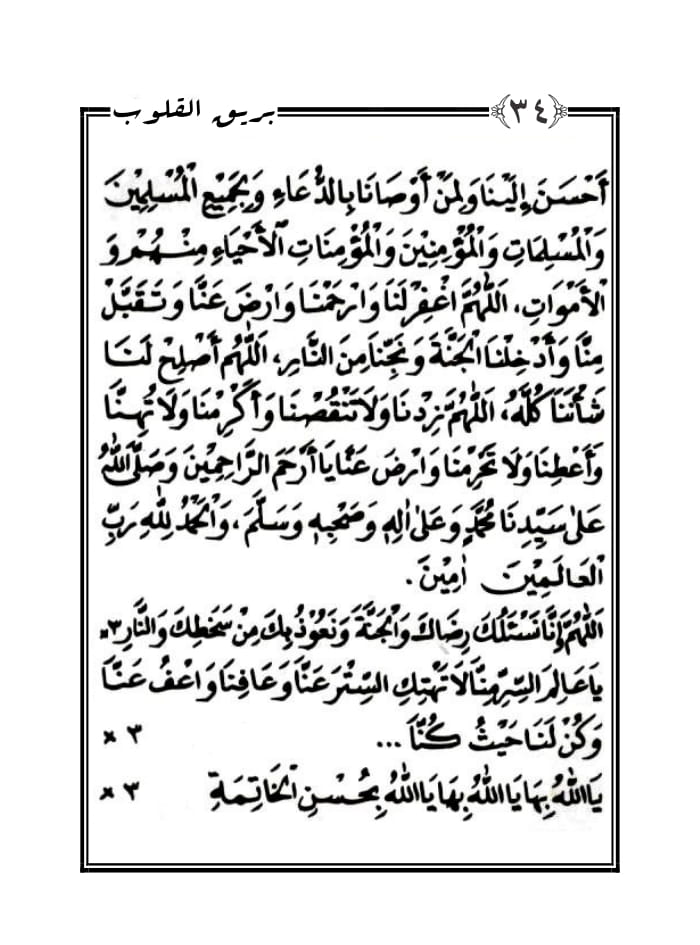 ﴿٣٤﴾ بريق القلوب
أَحْسَنَ إِلَيْنَا وَلِمَنْ أَوْصَانَا بِالدُّعَاءِ وَبِجَمِيْعِ الْمُسْلِمِيْنَ
وَالْمُسْلِمَاتِ وَالْمُؤْمِنِيْنَ وَالْمُؤْمِنَاتِ الْأَحْيَاءِ مِنْهُمْ وَ
الْأَمْوَاتِ، اَللّٰهُمَّ اغْفِرْ لَنَا وَارْحَمْنَا وَارْضَ عَنَّا وَتَقَبَّلْ
مِنَّا وَأَدْخِلْنَا الْجَنَّةَ وَنَجِّنَا مِنَ النَّارِ، اَللّٰهُمَّ أَصْلِحْ لَنَا
شَأْنَنَا كُلَّهُ، اَللّٰهُمَّ زِدْنَا وَلَا تَنْقُصْنَا وَأَكْرِمْنَا وَلَا تُهِنَّا
وَأَعْطِنَا وَلَا تَحْرِمْنَا وَارْضَ عَنَّا يَا أَرْحَمَ الرَّاحِمِيْنَ وَصَلَّى اللّٰهُ
عَلٰى سَيِّدِنَا مُحَمَّدٍ وَعَلٰى اٰلِهٖ وَصَحْبِهٖ وَسَلَّمَ، وَالْحَمْدُ لِلّٰهِ رَبِّ
الْعَالَمِيْنَ اٰمِيْنَ.
اَللّٰهُمَّ إِنَّا نَسْئَلُكَ رِضَاكَ وَالْجَنَّةَ وَنَعُوْذُ بِكَ مِنْ سَخَطِكَ وَالنَّارِ ٣×
يَا عَالِمَ السِّرِّ مِنَّا لَا تَهْتِكِ السِّتْرَ عَنَّا وَعَافِنَا وَاعْفُ عَنَّا
وَكُنْ لَنَا حَيْثُ كُنَّا ... ٣ ×
يَا اَللّٰهُ بِهَا يَا اَللّٰهُ بِهَا يَا اَللّٰهُ بِحُسْنِ الْخَاتِمَةِ ٣ ×